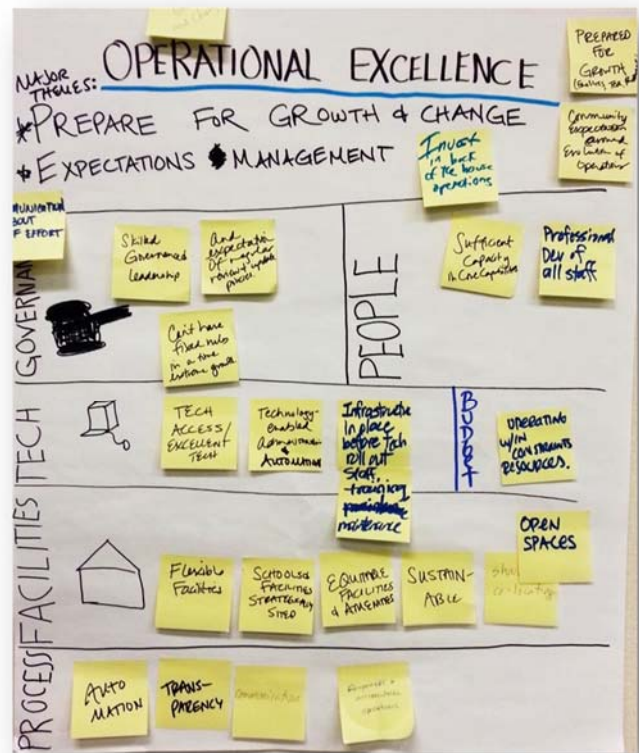 MAJOR
THEMES: OPERATIONAL EXCELLENCE
*PREPARE FOR GROWTH & CHANGE
*EXPECTATIONS MANAGEMENT
PREPARED
FOR
GROWTH
Community
Expectation
around
Evolution of
Operations
Invest
in back
of the house
operations
MUNICATION
BOUT
F EFFORT
GOVERNAN
Skilled
Governance
Leadership
And
expectation
of regular
update
process
Can't have
fixed
in a time
extreme growth
PEOPLE
Sufficient
Capacity
in Core Capacities
Professional
Dev of
all staff
TECH
TECH
ACCESS/
EXCELLENT
TECH
Technology-
enabled
& AUTOMATION
Infrastructure
in place
before Tech
roll out
Staff
training
maintenance
BUDGET
OPERATING
W/IN
CONSTRAINTS
RESOURCES.
FACILITIES
Flexible
Facilities
SCHOOLS &
FACILITIES
STRATEGICALLY
SITED
EQUITABLE
FACILITIES
& AMENITIES
SUSTAIN-
ABLE
OPEN
SPACES
PROCESS
AUTO
MATION
TRANS-
PARENCY
Communication